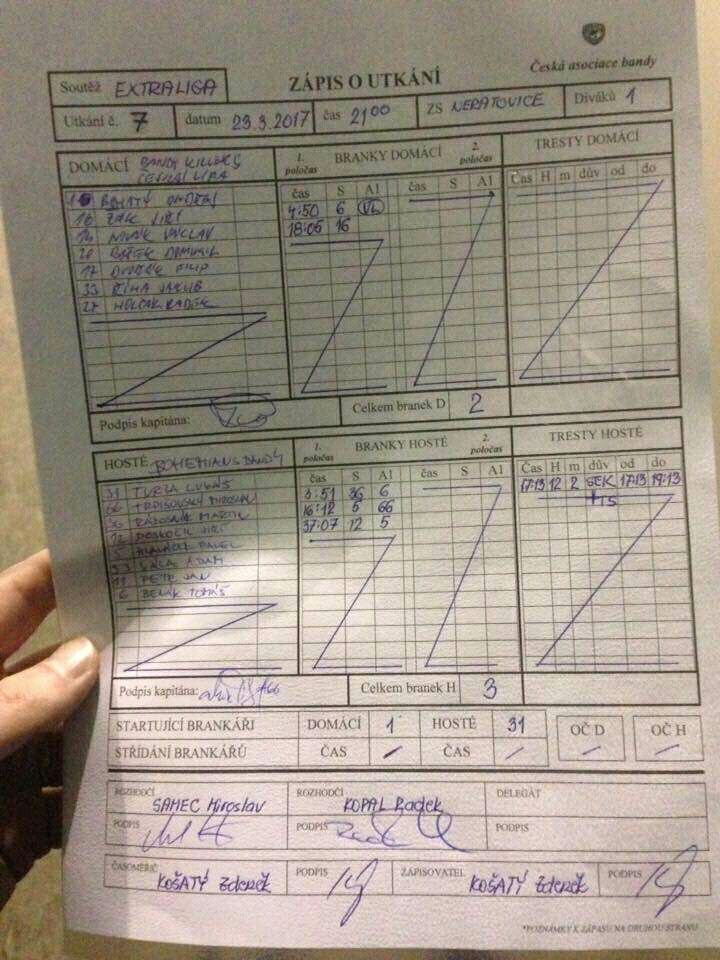 Česká asociace bandy
Soutěž EXTRALIGA
ZÁPIS O UTKÁNÍ
Utkání č. 7 datum 23.3.2017 čas 21 00 ZS NERATOVICE Diváků 1
DOMÁCÍ BANDY KILLERS
ČESKÁ LÍPA
1. poločas BRANKY DOMÁCÍ 2. poločas
TRESTY DOMÁCÍ
čas S A1 čas S A1
Čas H m dův od do
4:50 6 VL
18:05 16
16 ŽÁK JIŘÍ
NOVÁK VÁCLAV
20 DOMINIK
17 FILIP
33 ŘÍHA JAKUB
27 RADEK
Podpis kapitána:
Celkem branek D 2
HOSTÉ BOHEMIANS BANDY
1. poločas BRANKY HOSTÉ 2. poločas
TRESTY HOSTÉ
čas S A1 čas S A1
Čas H m dův od do
31 TVRZA LUKÁŠ
66 MIROSLAV
36 RADOSNÍK MARTIN
12 DOSKOČIL JIŘÍ
5 PAVEL
93 SALA ADAM
11 PETR JAN
6 BENÁK TOMÁŠ
3:51 36 6
16:12 5 66
37:07 12 5
17:13 12 2 SEK 17:13 19:13
+TS
Podpis kapitána:
Celkem branek H 3
STARTUJÍCÍ BRANKÁŘI DOMÁCÍ 1 HOSTÉ 31 OČ D OČ H
STŘÍDÁNÍ BRANKÁŘŮ ČAS ČAS
ROZHODČÍ SAMEC Miroslav
ROZHODČÍ KOPAL Radek
DELEGÁT
PODPIS
PODPIS
PODPIS
ČASOMĚŘIČ KOŠATÝ Zdeněk PODPIS
ZAPISOVATEL KOŠATÝ Zdeněk PODPIS
*POZNÁMKY K ZÁPASU NA DRUHOU STRANU